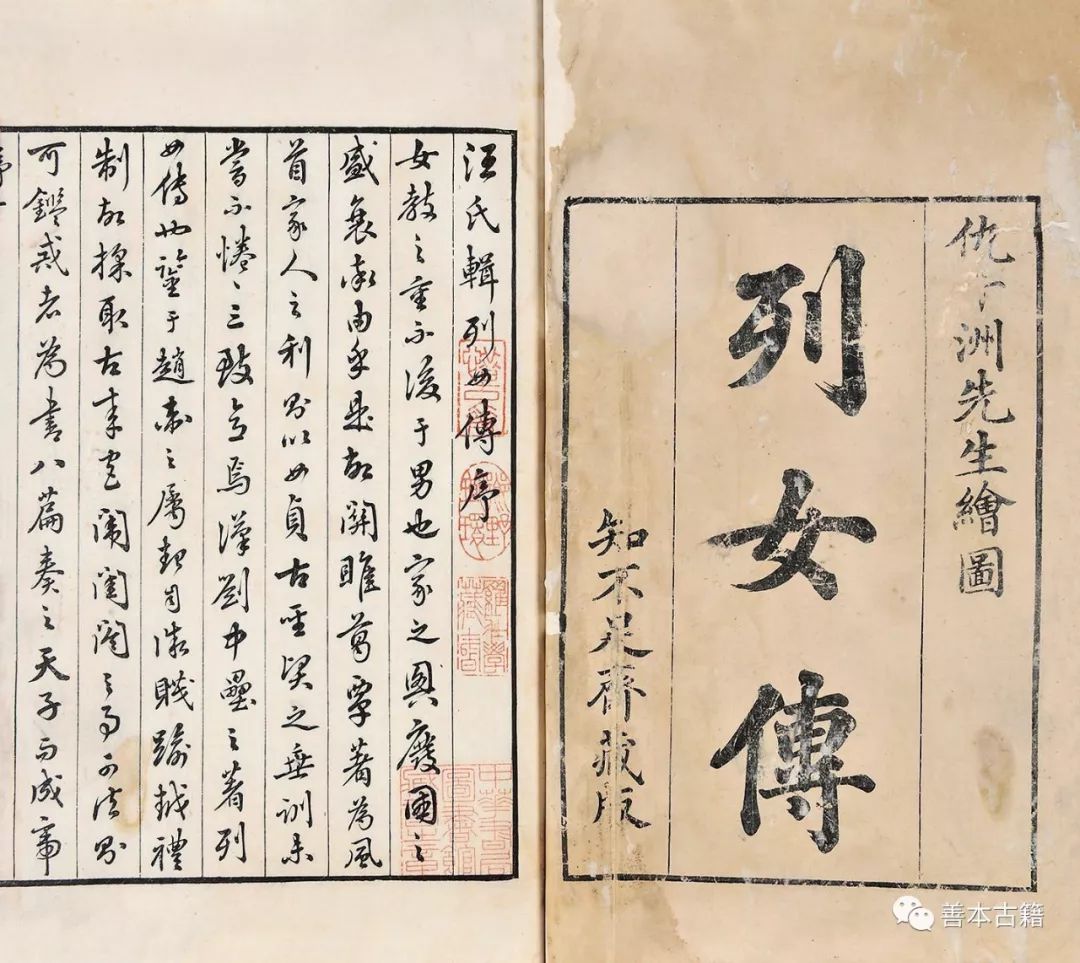 仇十洲先生繪圖
列女傳
知不足齋藏版
汪氏輯列女傳序
女教之重不後于男也家之興廢國之
盛衰率由乎是故關雎葛覃著為風
首家人之利則以女貞古聖賢之垂訓未
嘗不惓〻三致意焉漢劉中壘之著列
女傳也鑒于趙衛之屬起自微賤踰越禮
制故採取古來閨閤之事可法則
可鑑戒者為書八篇奏之天子而成帝
善本古籍